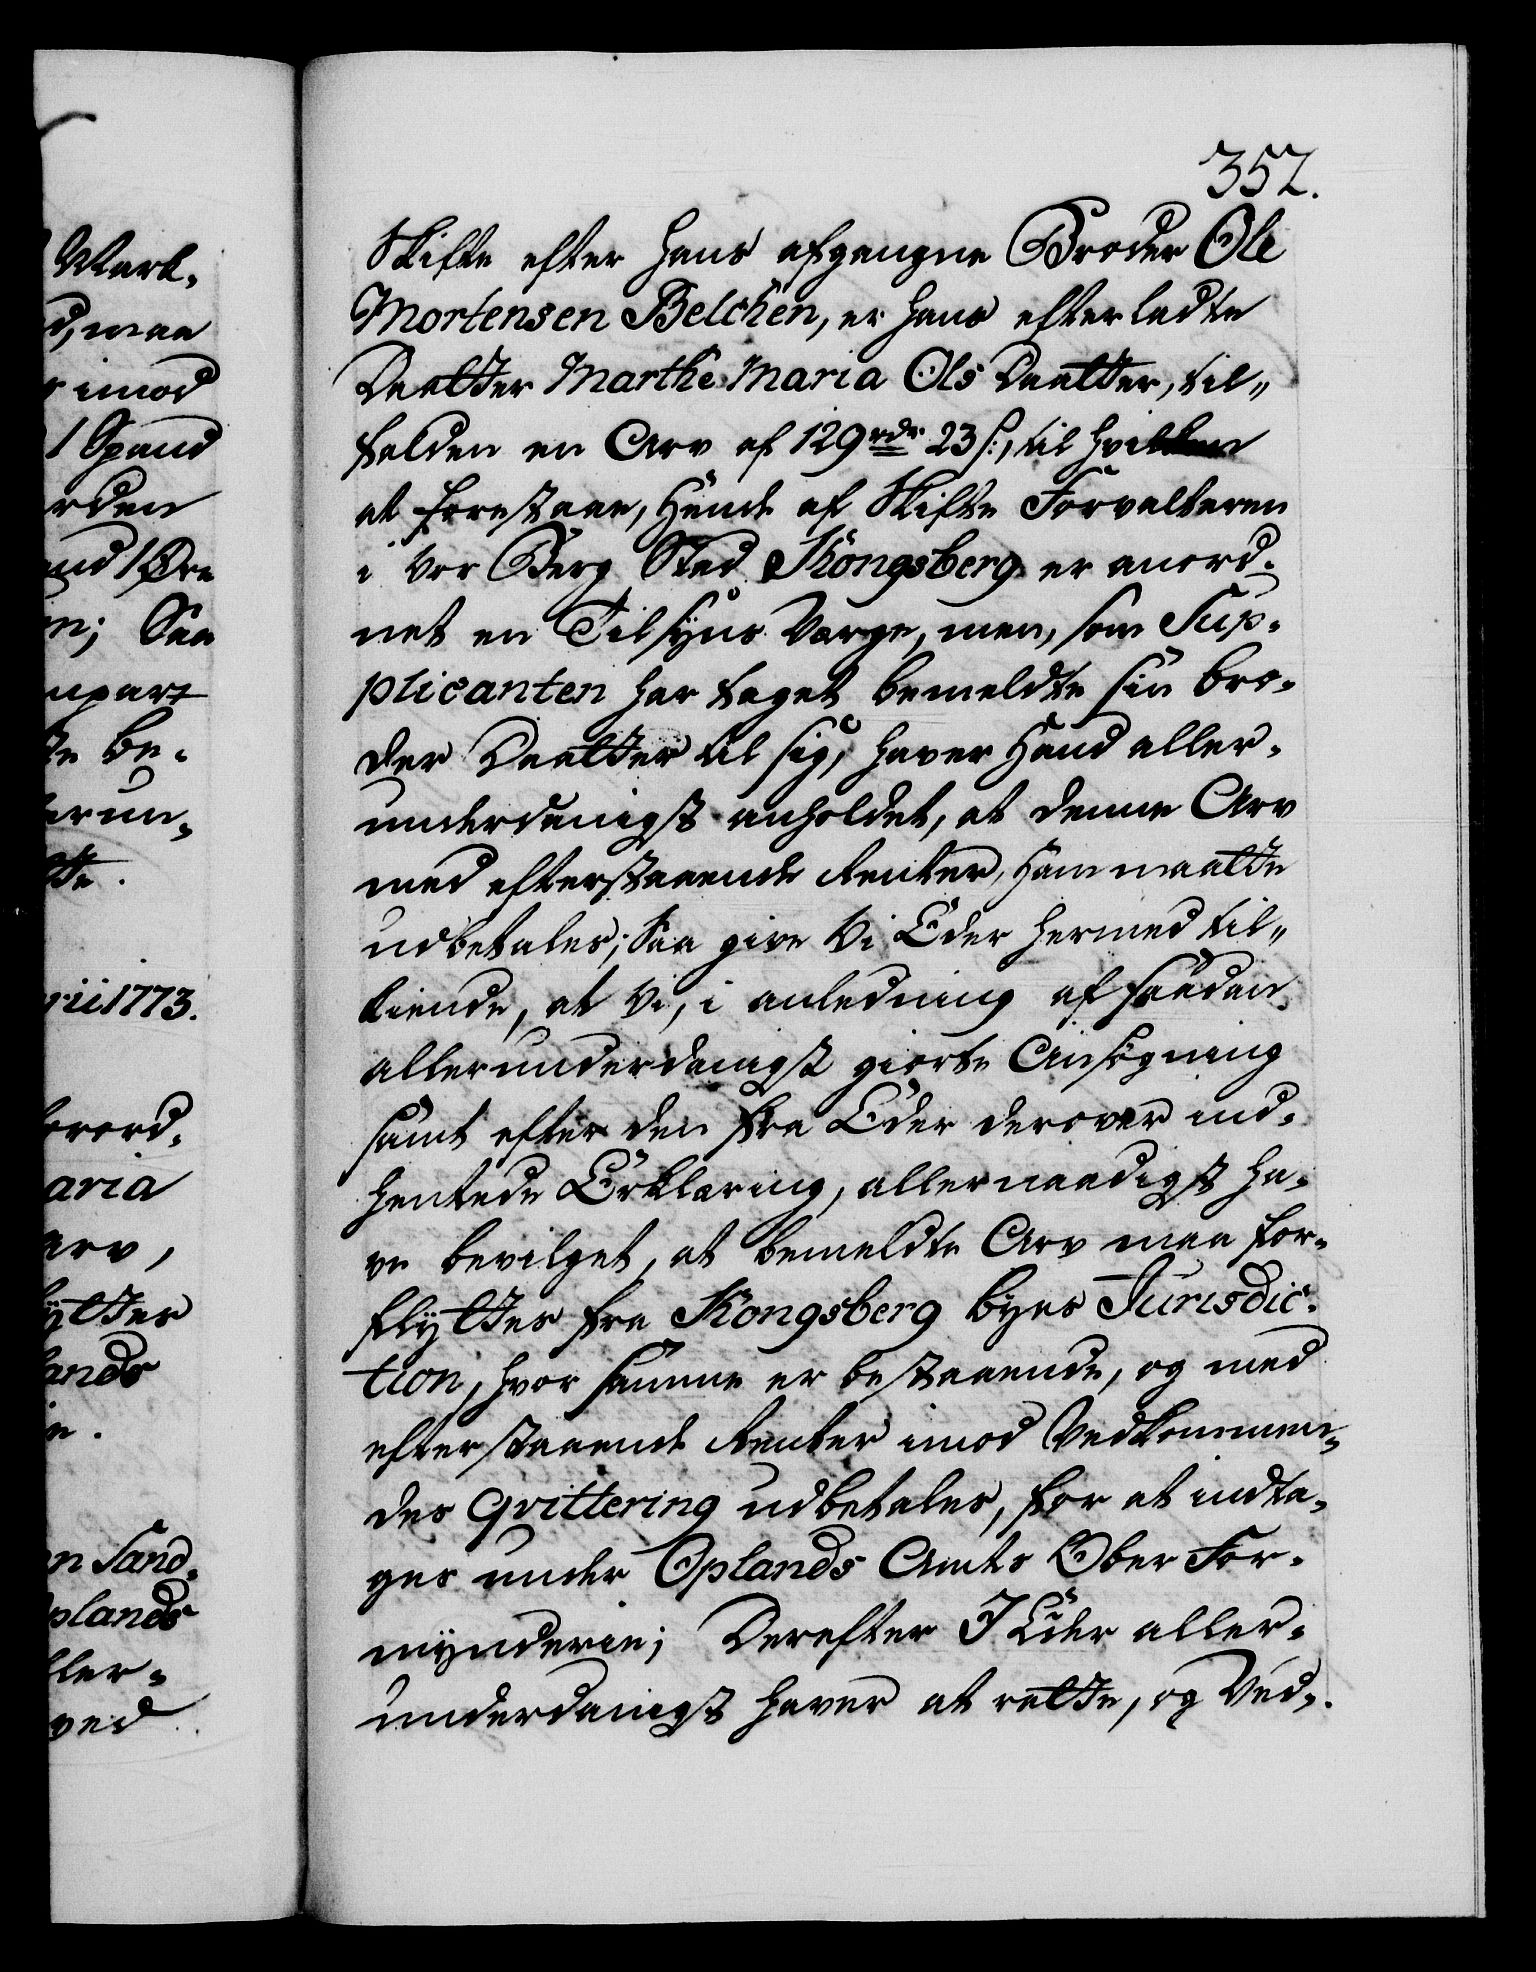 Mark-
d, maa
imod
1 Spand
rden
nd 1 Øre
en; Saa
npart
te be-
run-
tte.
rii 1773.
orord-
aria
arv,
ÿttes
lands
ie.
en Sand-
plands
ller-
ved
352.
Skifte efter hans afgangne Broder Ole
Mortensen Belchen, er hans efterladte
Daatter Marthe Maria Ols Daatter, til-
falden en Arv af 129 rdr 23 s:, til hvilken
at forestaae, Hende af Skifte Forvalteren
i vor Berg Stad Kongsberg er anord-
net en Tilsÿns Værge, men, som Sup-
plicanten har taget bemeldte sin Bro-
der Daatter til sig, haver Hand aller-
underdanigst anholdet, at denne Arv
med efterstaaende Renter, Ham maatte
udbetales; Saa give Vi Eder hermed til-
kiende, at Vi, i anledning af saadan
allerunderdanigst giorte Ansøgning
samt efter den fra Eder derover ind-
hentede Erklæring, allernaadigst ha-
ve bevilget, at bemeldte Arv maa for-
flÿttes fra Kongsberg Byes Jurisdic-
tion, hvor samme er bestaaende, og med
efterstaaende Renter imod Vedkommen-
des Qvittering udbetales, for at indta-
ges under Oplands Amts Ober For-
mÿnderie; Derefter I Eder aller-
underdanigst haver at rette, og Ved-